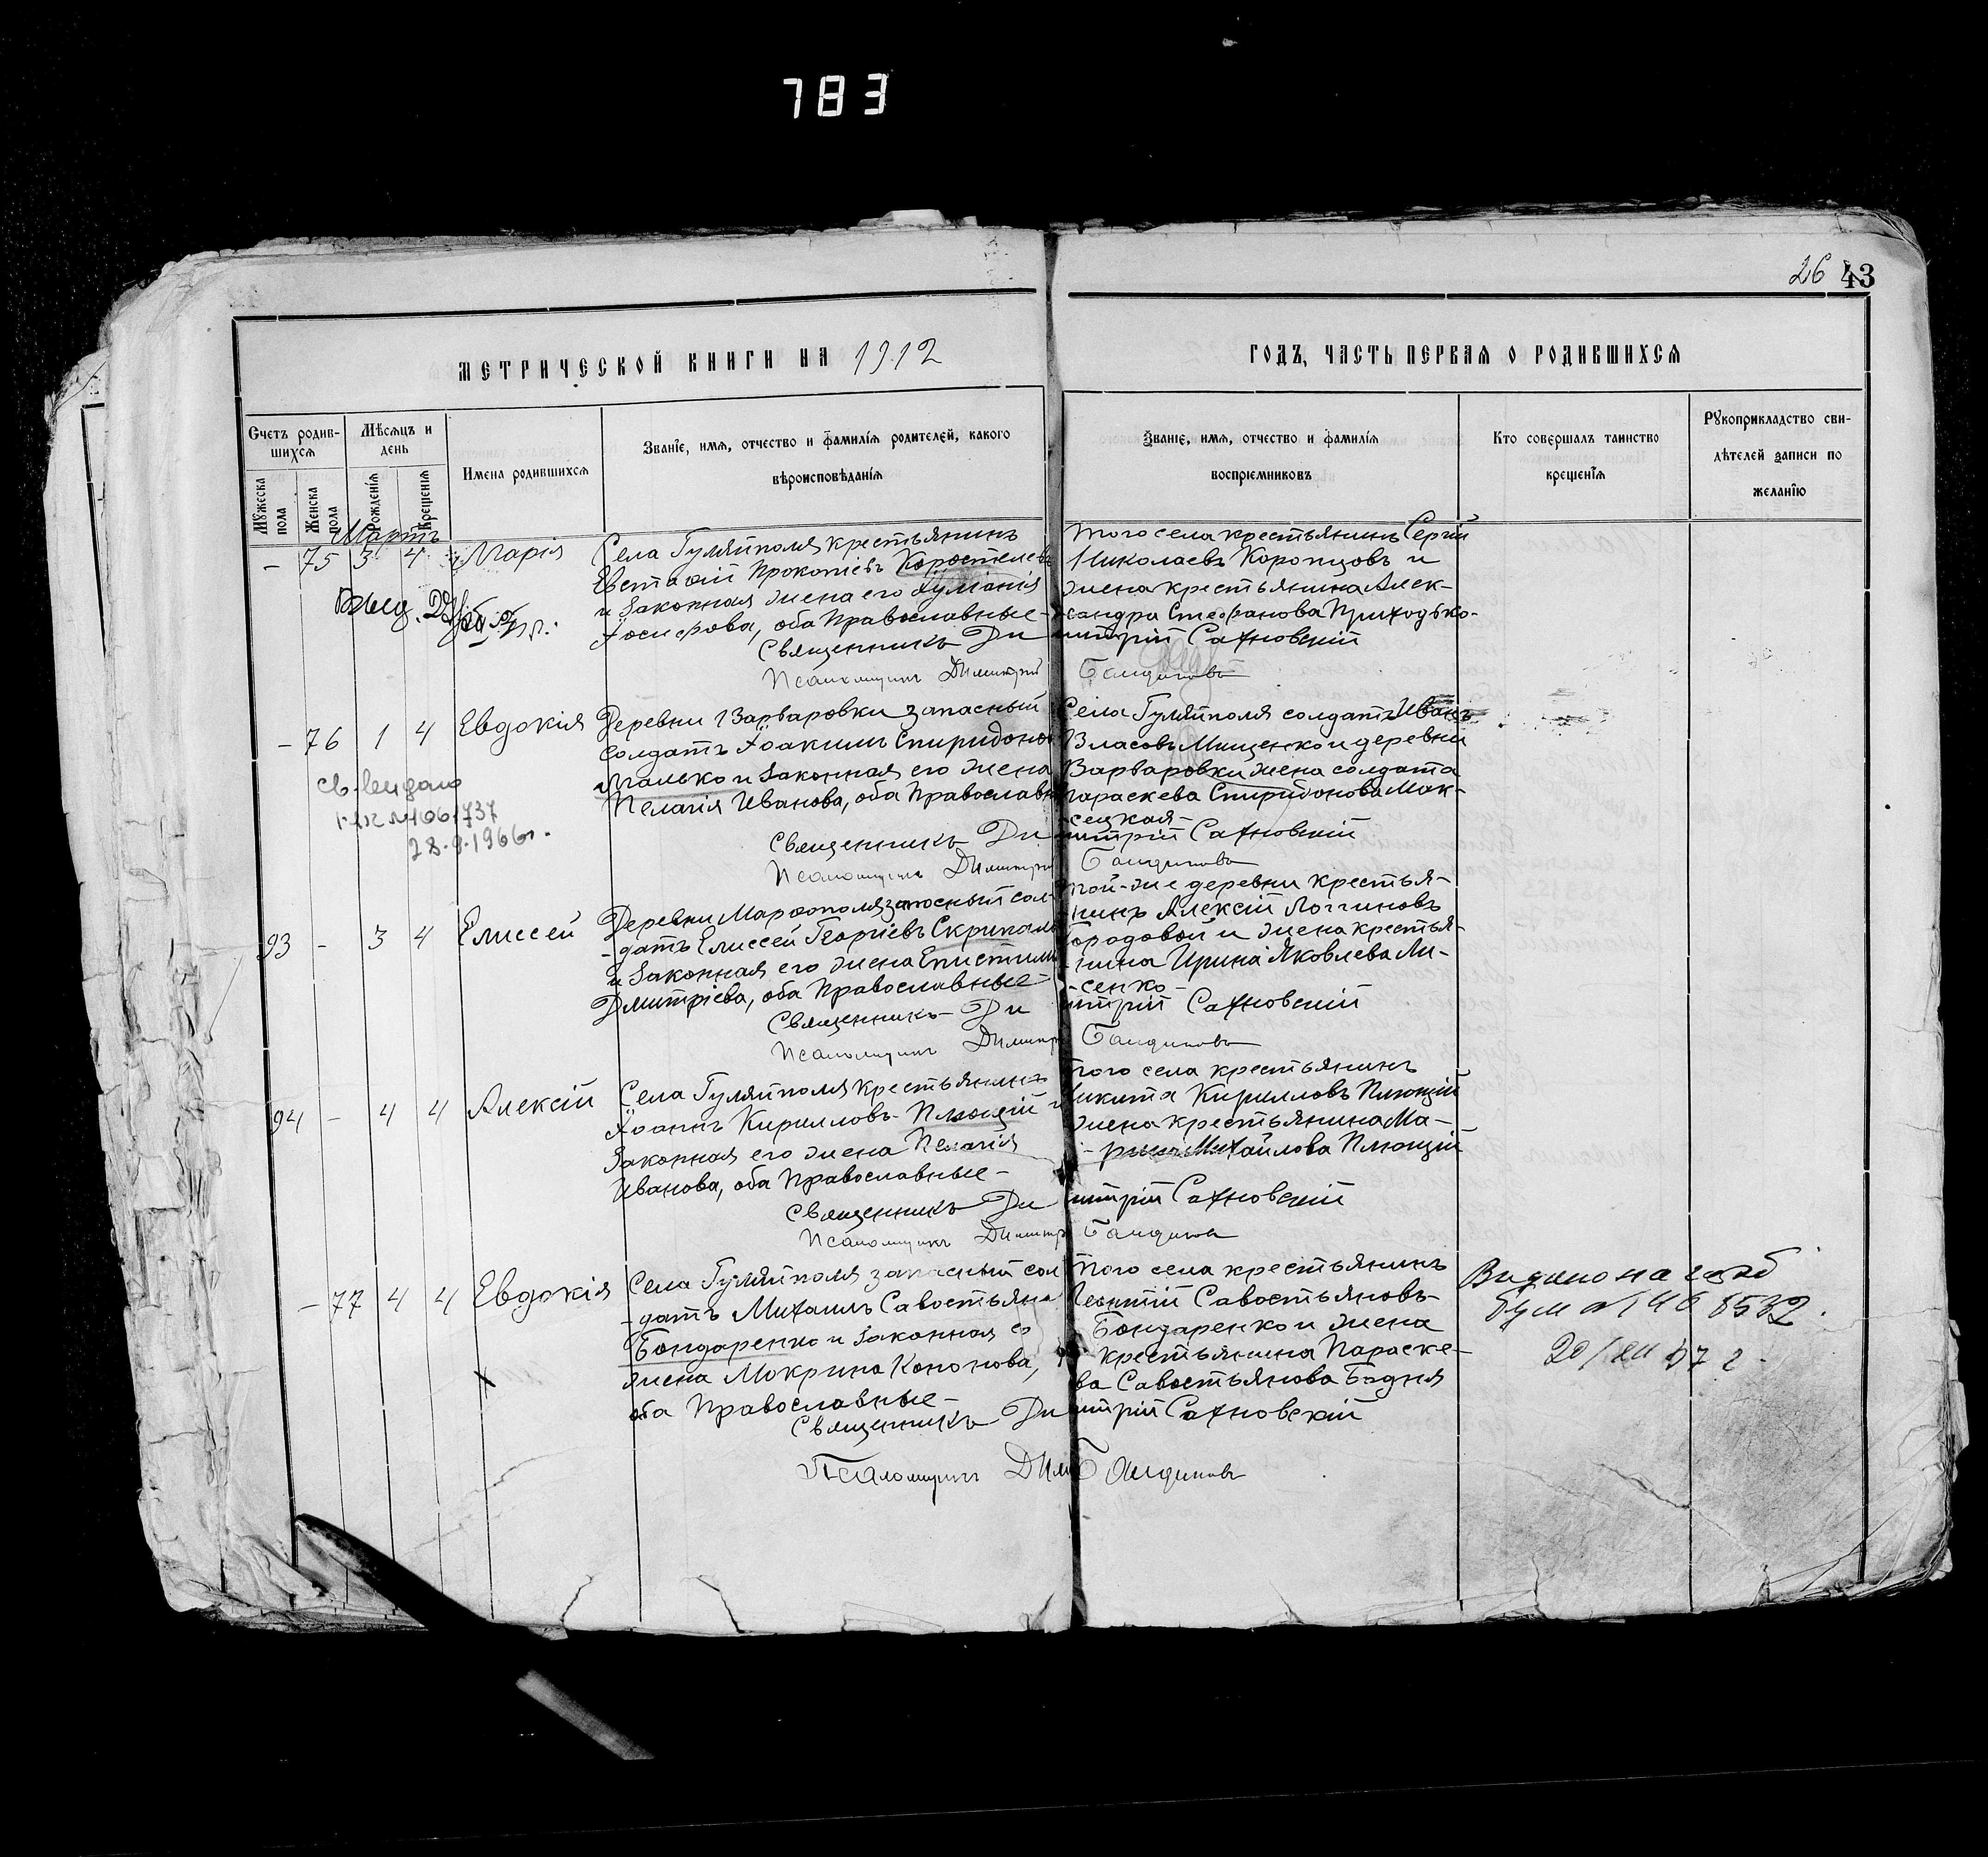 783
26 43
МЕТРИЧЕСКОЙ КНИГИ НА 1912
ГОДЪ, ЧАСТЬ ПЕРВАЯ О РОДИВШИХСЯ
Счетъ родив-
шихся
Мѣсяцъ и
день
Имена родившихся
Званіе, имя, отчество и фамилія родителей, какого
вѣроисповѣданія
Званіе, имя, отчество и фамилія
воспріемниковъ
Кто совершалъ таинство
крещенія
Рукоприкладство сви-
дѣтелей записи по
желанію
Мужеска
пола
Женска
пола
Рожденія
Крещенія
Мартъ
- 75 3 4 Марія
Села Гуляйполя крестьянинъ
Евстафій Прокопіевъ Коростелевъ
и законная жена его
Іосифова, оба Православные-
того села крестьянинъ Сергій
Николаевъ Коропцовъ и
жена крестьянина Алек-
сандра Стефанова Приходько-
Священникъ Димитрій Сахновскій
Псаломщикъ Димитрій
- 76 1 4 Евдокія
Деревни Варваровки запасный
солдатъ Іоакимъ Спиридоновъ
Малько и законная его жена
Пелагія Иванова, оба Православн
Села Гуляйполя солдатъ Иванъ
Власовъ Мищенко и деревни
Варваровки жена солдата
Параскева Спиридонова Мак-
сецкая-
28.9.1966г.
Священникъ Димитрій Сахновскій
Псаломщикъ Димитрій
93 - 3 4 Елиссей
Деревни Марфополя запасный сол-
-датъ Елиссей Георгіевъ Скрипаль
и законная его жена Епистимія
Дмитріева, оба Православные-
той-же деревни крестья-
нинъ Алексій Логгиновъ
Городовой и жена крестья-
-нина Ирина Яковлева Ли-
-сенко-
Священникъ Димитрій Сахновскій
Псаломщикъ Димитр
94 - 4 4 Алексій
Села Гуляйполя крестьянинъ
Іоаннъ Кирилловъ Плющій и
законная его жена Пелагія
Иванова, оба Православные-
того села крестьянинъ
Никита Кирилловъ Плющій
жена крестьянина Ма-
Михайлова Плющій
Священникъ Димитрій Сахновскій
Псаломщикъ Димитр
- 77 4 4 Евдокія
Села Гуляйполя запасный сол
-датъ Михаилъ Савостьяно
Бондаренко и законная его
жена Мокрина Кононова,
оба Православные-
того села крестьянинъ
Леонтій Савостьяновъ
Бондаренко и жена
крестьянина Параске-
ва Савостьянова Бодня
Священникъ Димитрій Сахновскій
Псаломщикъ Дим